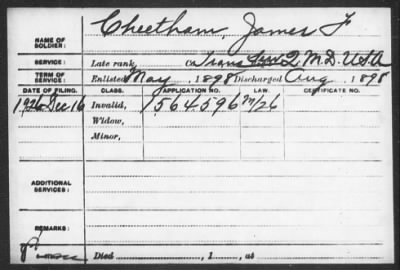 Cheetham, James F
NAME OF SOLDIER:
SERVICE: Late rank, Co. Trans Q.M.D. U.S.A
TERM OF SERVICE: Enlisted May, 1898 Discharged Aug, 1898
DATE OF FILING. CLASS. APPLICATION NO. LAW. CERTIFICATE NO.
1926 Dec 16 Invalid, 1564596 /26
Widow,
Minor,
ADDITIONAL SERVICES:
REMARKS:
Died, 1, at